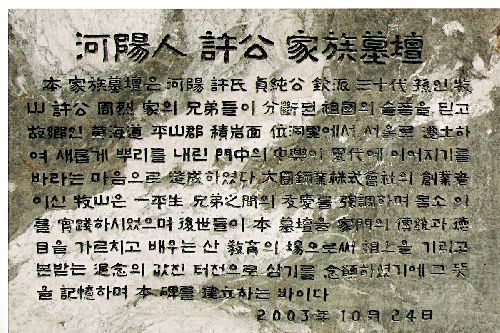 河陽人 許公 家族墓壇
本 家族墓壇은 河陽 許氏 貞純公 欽派 三十代 孫인 牧
山 許公 周烈 家의 兄弟들이 分斷된 祖國의 슬픔을 딛고
故鄕인 黃海道 平山郡 積岩面 位洞里에서 서울로 遷土하
여 새롭게 뿌리를 내린 門中의 中興이 累代에 이어지기를
바라는 마음으로 造成하였다 大圓鋼業株式會社의 創業者
이신 牧山은 一平生 兄弟之間의 友愛를 强調하며 몸소 이
를 實踐하시었으며 後世들이 本 墓壇을 家門의 傳統과 德
目을 가르치고 배우는 산 敎育의 場으로써 祖上을 기리고
본받는 追念의 값진 터전으로 삼기를 念願하셨기에 그 뜻
을 記憶하며 本 碑를 建立하는 바이다
2003年 10月 24日